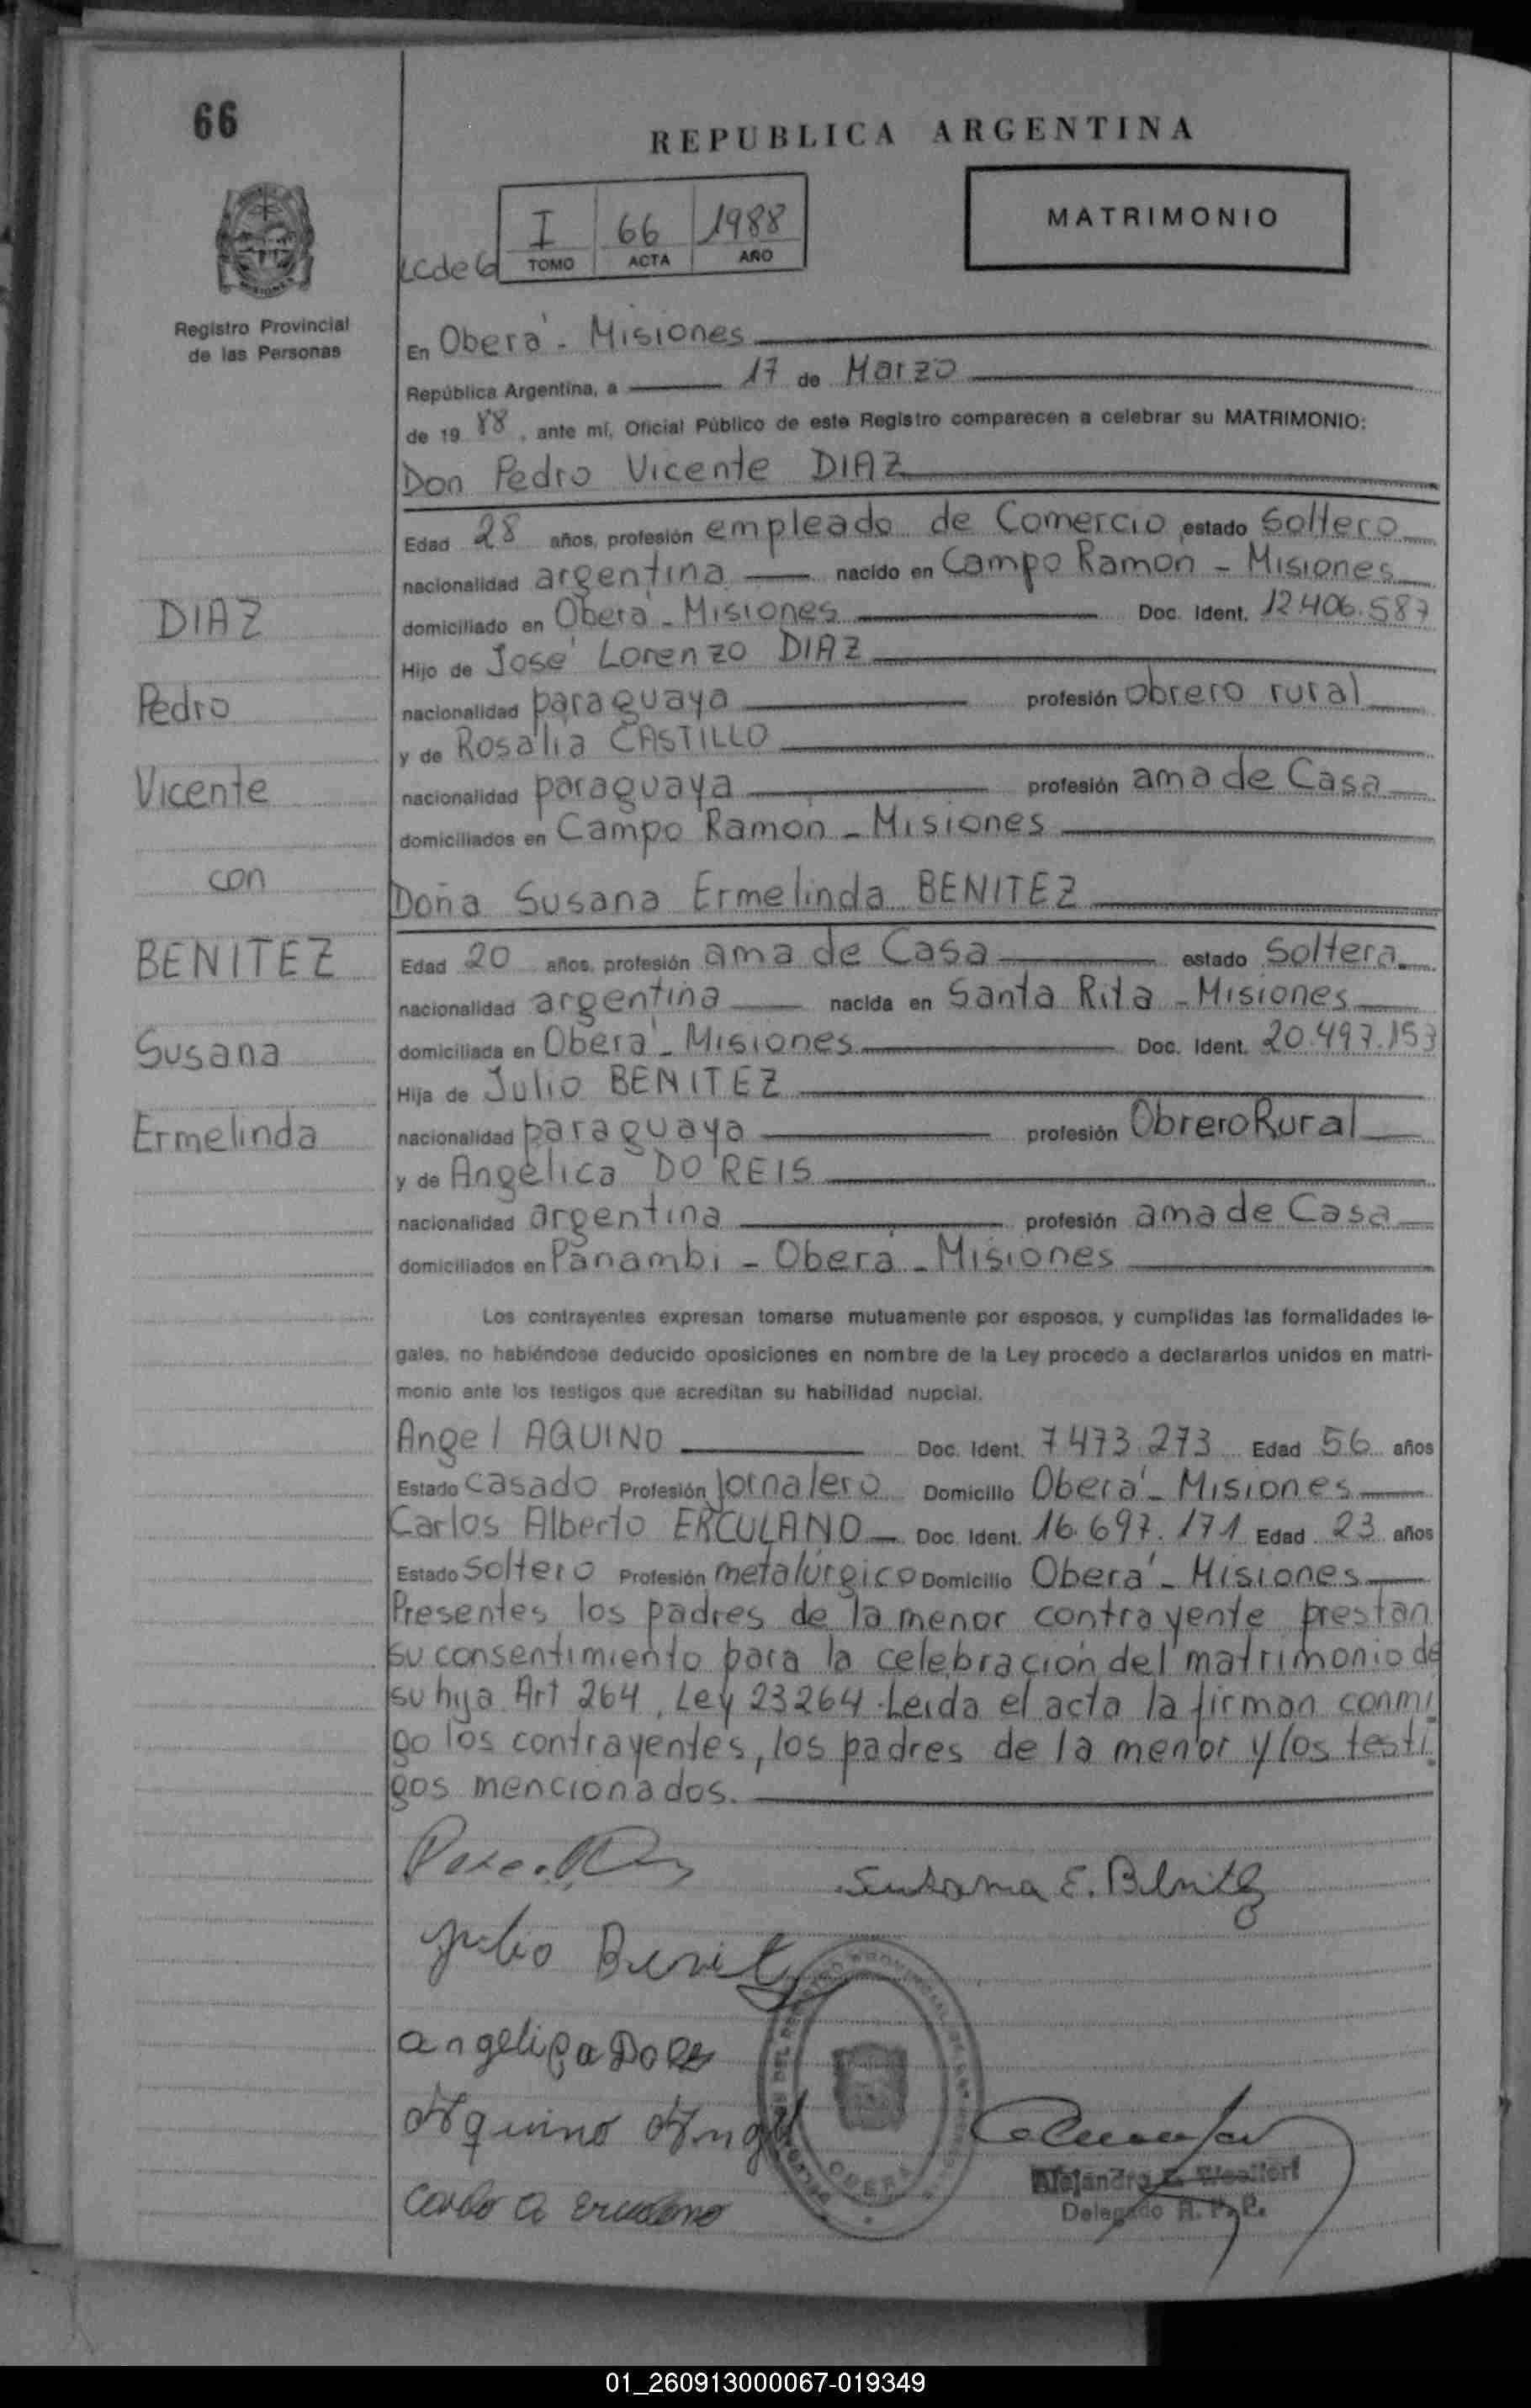 66
REPUBLICA ARGENTINA
MATRIMONIO
I 66 1988
TOMO ACTA AÑO
Registro Provincial
de las Personas
En Oberá - Misiones
República Argentina, a 17 de Marzo
de 19 88, ante mí, Oficial Público de este Registro comparecen a celebrar su MATRIMONIO:
Don Pedro Vicente DIAZ
Edad 28 años, profesión empleado de Comercio estado Soltero
nacionalidad argentina nacido en Campo Ramon - Misiones
DIAZ
domiciliado en Oberá - Misiones Doc. Ident. 12.406.587
Hijo de José Lorenzo DIAZ
Pedro
nacionalidad paraguaya profesión obrero rural
y de Rosalia CASTILLO
Vicente
nacionalidad paraguaya profesión ama de Casa
domiciliados en Campo Ramon - Misiones
con
Doña Susana Ermelinda BENITEZ
BENITEZ
Edad 20 años, profesión ama de Casa estado Soltera
nacionalidad argentina nacida en Santa Rita - Misiones
Susana
domiciliada en Oberá - Misiones Doc. Ident. 20.497.153
Hija de Julio BENITEZ
Ermelinda
nacionalidad paraguaya profesión Obrero Rural
y de Angélica DO REIS
nacionalidad argentina profesión ama de Casa
domiciliados en Panambi - Oberá - Misiones
Los contrayentes expresan tomarse mutuamente por esposos, y cumplidas las formalidades le-
gales, no habiéndose deducido oposiciones en nombre de la Ley procedo a declararlos unidos en matri-
monio ante los testigos que acreditan su habilidad nupcial.
Angel AQUINO Doc. Ident. 7473.273 Edad 56 años
Estado Casado Profesión Jornalero Domicilio Oberá - Misiones
Carlos Alberto ERCULANO Doc. Ident. 16.697.171 Edad 23 años
Estado Soltero Profesión metalúrgico Domicilio Oberá - Misiones
Presentes los padres de la menor contrayente prestan
su consentimiento para la celebración del matrimonio de
su hija Art 264, Ley 23264. Leida el acta la firman conmi
go los contrayentes, los padres de la menor y los testi
gos mencionados.
Susana E. Benitez
Julio Benitez
Aquino Angel
Delegado R. P. P.
OBERA
01_260913000067-019349